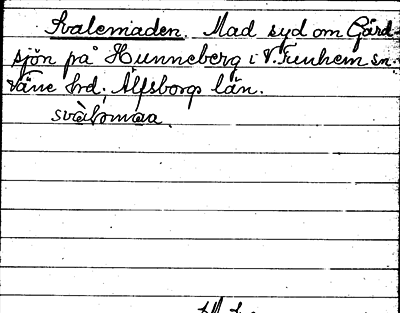 Svalemaden. Mad syd om Gärd-
sjön på Hunneberg i V. Tunhem sn.
Väne hrd, Älfsborgs län.
svàlomaa.